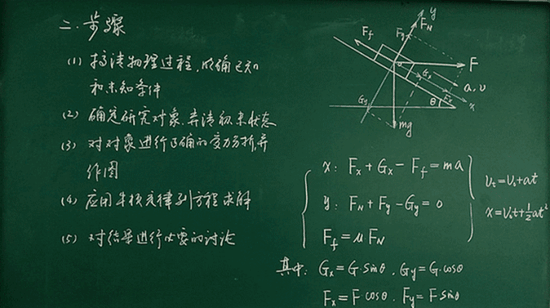 二. 步骤
(1) 搞清物理过程，明确已知
和未知条件
(2) 确定研究对象，弄清初、末状态
(3) 对对象进行正确的受力分析，并
作图
(4) 应用牛顿定律列方程求解
(5) 对结果进行必要的讨论
y
F_N
F_y
F_f
F
G_x
a, υ
F_x
x
G_y
θ
mg
x: F_x + G_x - F_f = ma
y: F_N + F_y - G_y = 0
F_f = μF_N
υ_t = υ_0 + at
x = υ_0t + ½at²
其中: G_x = G·sinθ, G_y = G·cosθ
F_x = F·cosθ, F_y = F·sinθ